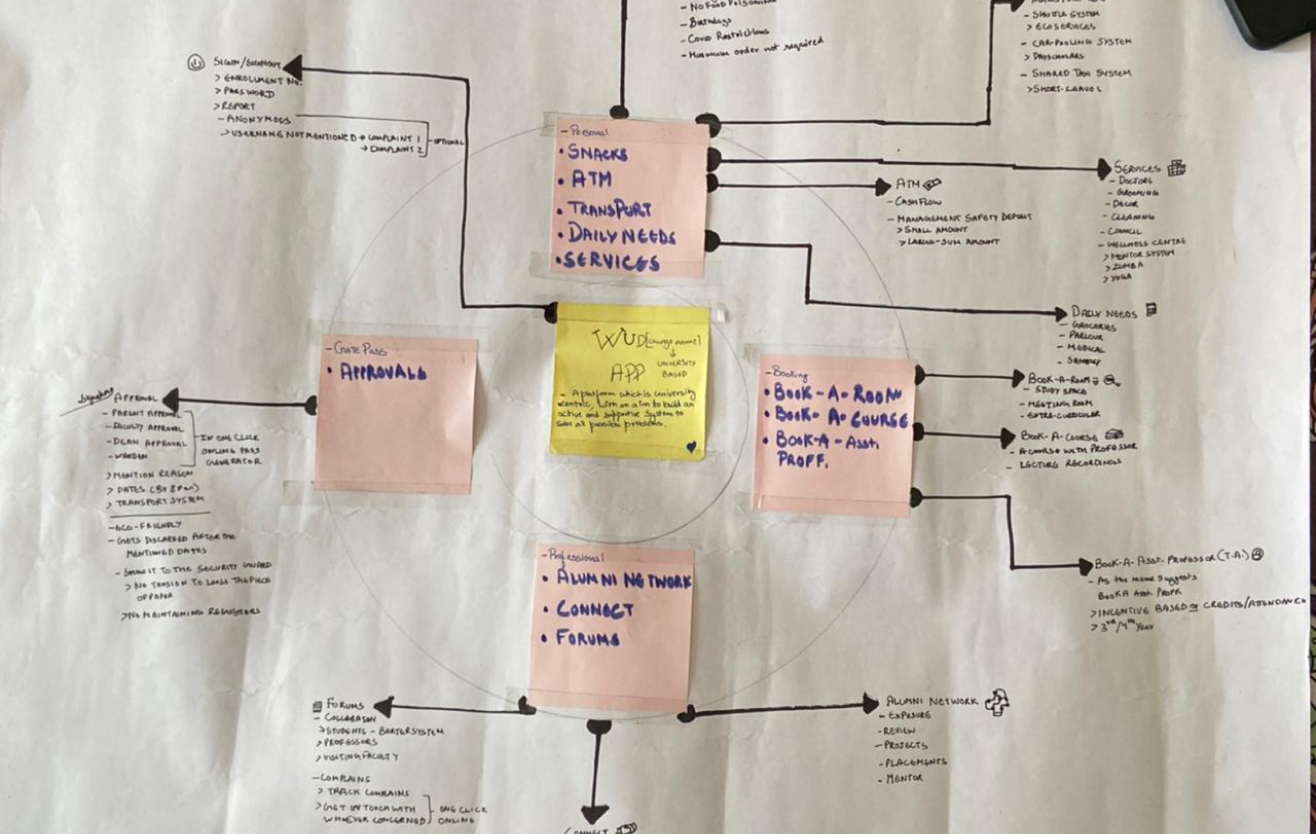 - Birthdays
- Covid Restrictions
- Minimum order not required
- SHUTTLE SYSTEM
> ECOSERVICES
- CAR-POOLING SYSTEM
> DAYSCHOLARS
- SHARED TAXI SYSTEM
> SHORT-LEAVES
> ENROLLMENT NO.
> PASSWORD
> REPORT
- ANONYMOUS
> USERNAME NOT MENTIONED → COMPLAINT 1
→ COMPLAINT 2
OPTIONAL
- Personal
• SNACKS
• ATM
• TRANSPORT
• DAILY NEEDS
• SERVICES
ATM
- CASH FLOW
- MANAGEMENT SAFETY DEPOSIT
> SMALL AMOUNT
SERVICES
- DOCTORS
- GROOMING
- DECOR
- CLEANING
- COUNCIL
- WELLNESS CENTRE
> MENTOR SYSTEM
> ZUMBA
> YOGA
DAILY NEEDS
- GROCERIES
- PARLOUR
- MEDICAL
WUD [change name]
↓
APP UNIVERSITY
BASED
- A platform which is University
centric, with an aim to build an
active and supportive system to
- Gate Pass
• APPROVALS
APPROVAL
- PARENT APPROVAL
- FACULTY APPROVAL
- DEAN APPROVAL
- WARDEN
IN ONE CLICK
ONLINE PASS
GENERATOR
> MENTION REASON
> DATES
> TRANSPORT SYSTEM
- ECO-FRIENDLY
- GETS DISCARDED AFTER THE
MENTIONED DATES
- SHOW IT TO THE SECURITY GUARD
> NO TENSION TO LOOSE THE PIECE
OF PAPER
> NO MAINTAINING REGISTERS
- Booking
• BOOK-A-ROOM
• BOOK-A-COURSE
• BOOK-A-Asst.
PROFF.
BOOK-A-ROOM
- STUDY SPACE
- MEETING ROOM
- EXTRA-CURRICULAR
BOOK-A-COURSE
- A COURSE WITH PROFESSOR
- LECTURE RECORDINGS
BOOK-A-ASST. PROFESSOR (T.A.)
- As the name suggests
BOOK A Asst. Proff.
> INCENTIVE BASED CREDITS/ATTENDANCE
> 3rd/4th Year
- Professional
• ALUMNI NETWORK
• CONNECT
• FORUMS
FORUMS
> STUDENTS - BARTER SYSTEM
> PROFESSORS
> VISITING FACULTY
- COMPLAINS
> TRACK COMPLAINS
> GET IN TOUCH WITH
WHOEVER CONCERNED
ONE CLICK
ONLINE
ALUMNI NETWORK
- EXPOSURE
- REVIEW
- PROJECTS
- PLACEMENTS
- MENTOR
CONNECT